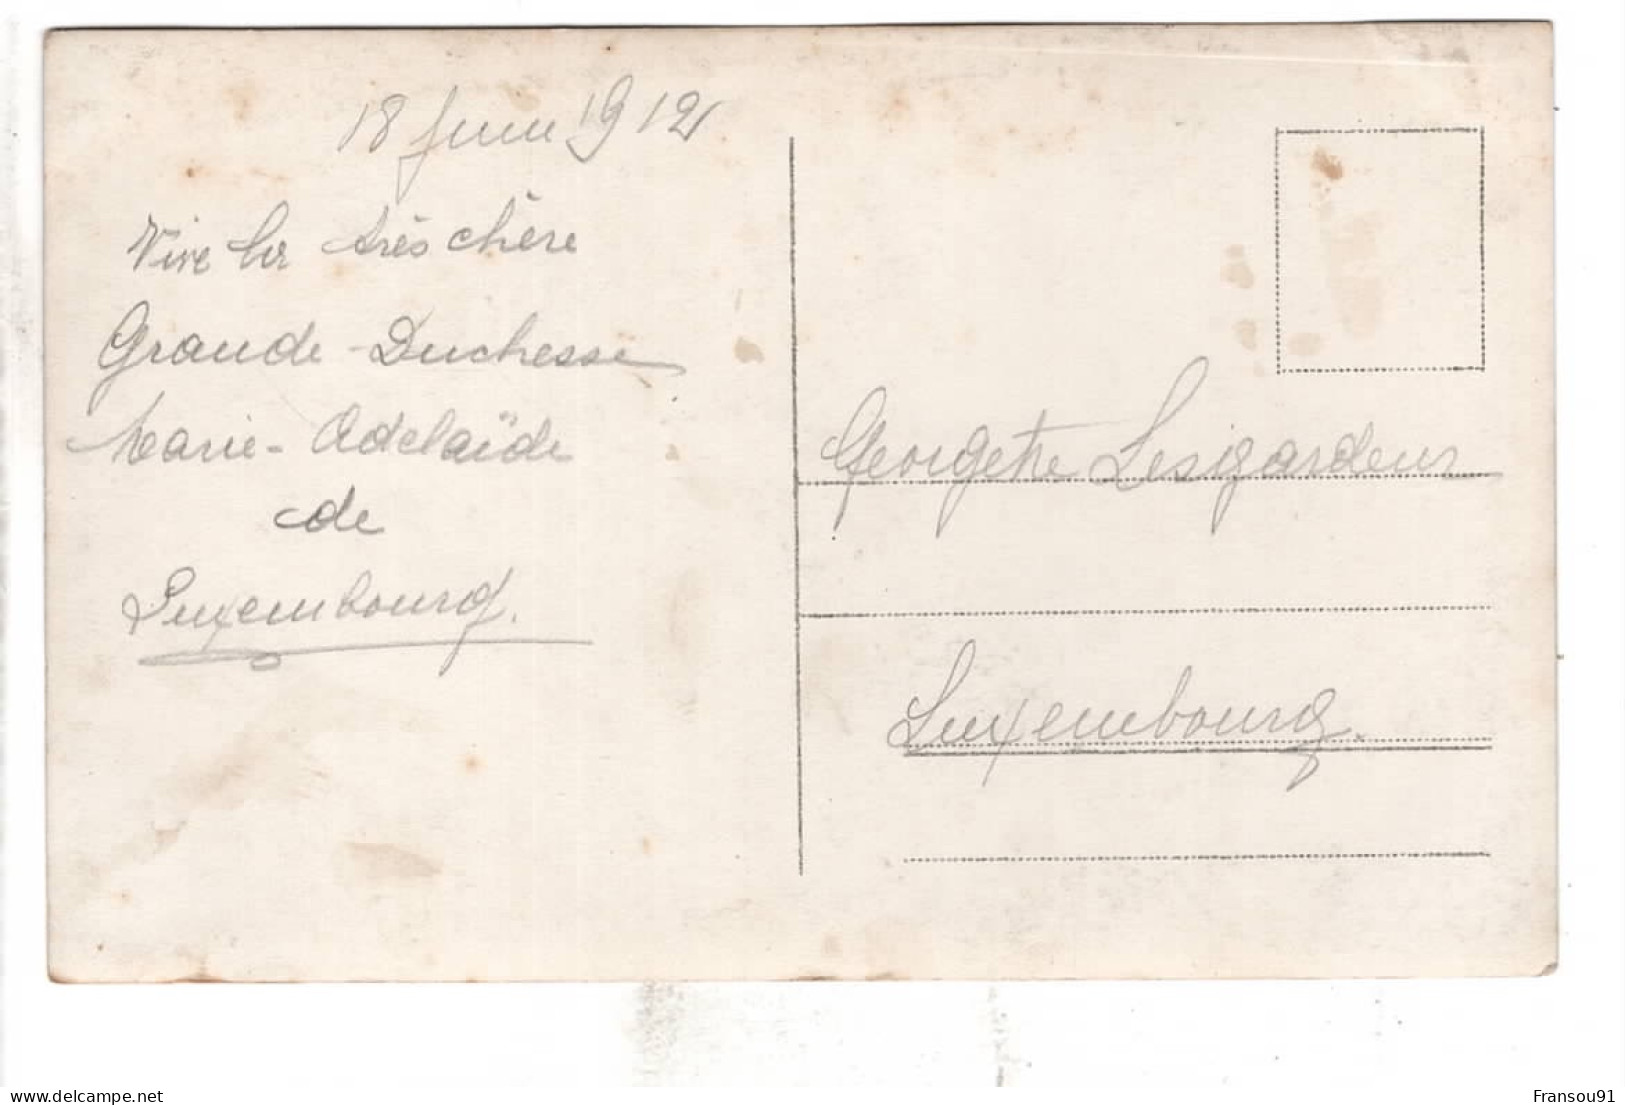 18 Juin 1912
Vive la très chère
Grande-Duchesse
Marie-Adelaïde
de
Luxembourg.
Georgette Lesigardeur
Luxembourg.
delcampe.net
Fransou91